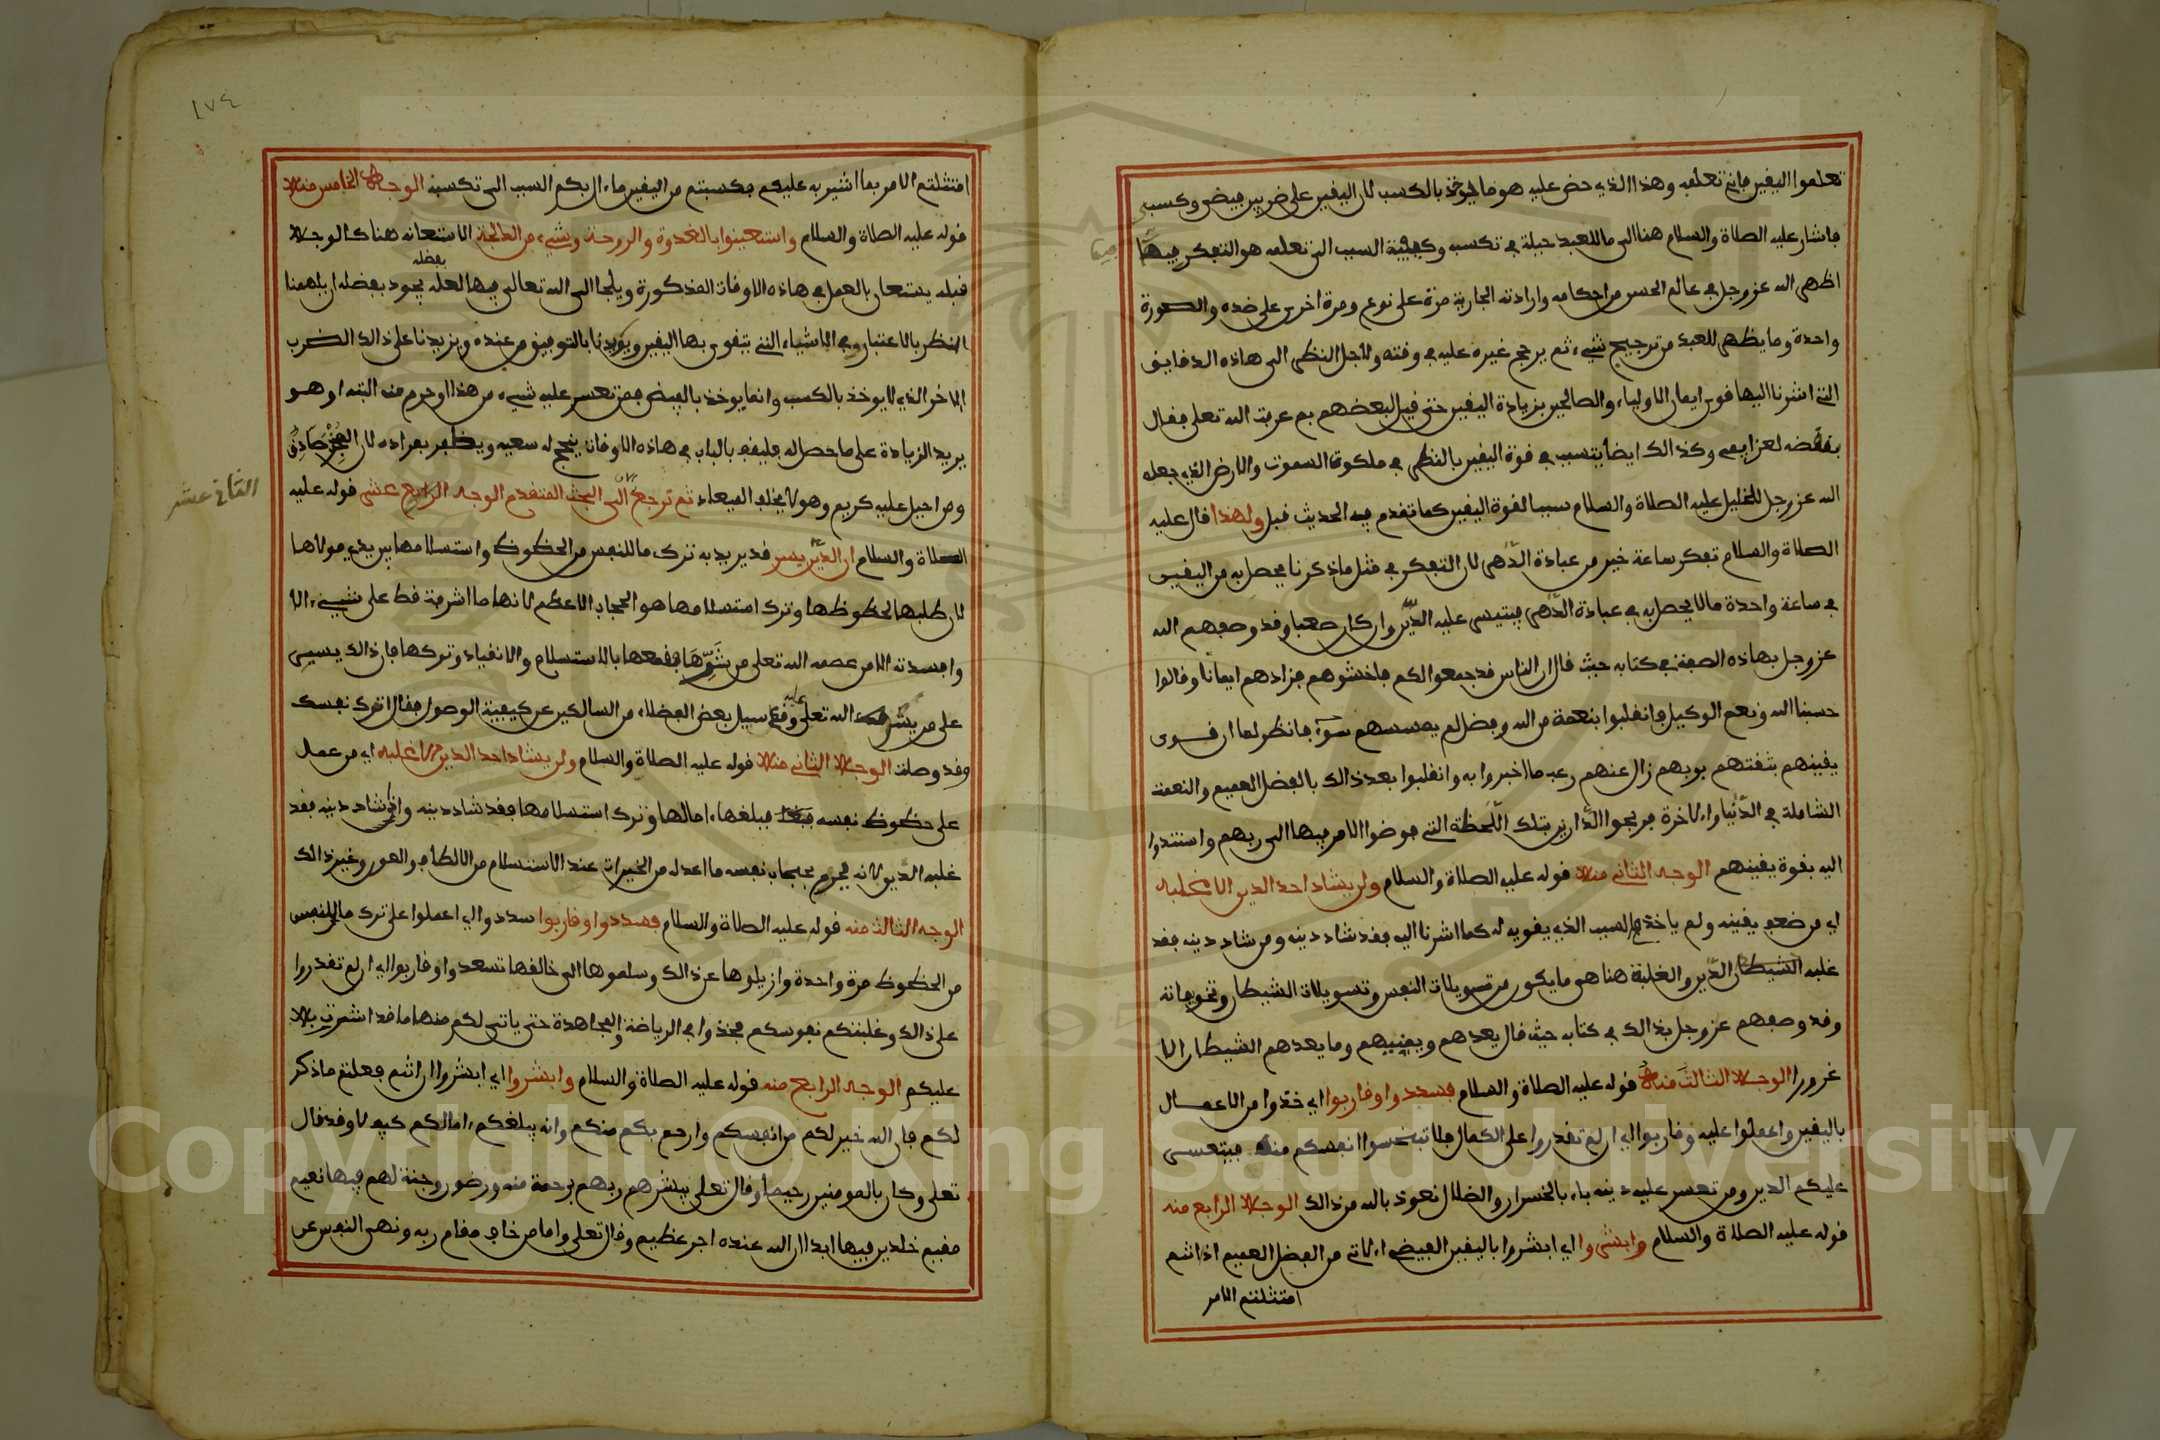 تعلموا اليقين فاني تعلمه وهذا الذي حض عليه هو ما يوخذ بالكسب لان اليقين على ضربين فيض وكسب
فاشار عليه الصلاة والسلام هنا الى ما للعبد حيلة في تكسبه وكيفية السبب الى تعلمه هو التفكر فيما
اظهر الله عز وجل في عالم الحس من احكامه وارادته الجارية مرة على نوع ومرة اخرى على ضده والصورة
واحدة وما يظهر للعبد من ترجيح شيء ثم يرجح غيره عليه في وقته ولاجل النظر الى هاذه الدقايق
التي اشرنا اليها قوي ايمان الاولياء والصالحين بزيادة اليقين حتى قيل لبعضهم بم عرفت الله تعلى فقال
بنقضه لعزايمي وكذالك ايضا يتسبب في قوة اليقين بالنظر في ملكوت السموت والارض الذي جعله
الله عز وجل للخليل عليه الصلاة والسلام سببا لقوة اليقين كما تقدم فيه الحديث قبل ولهذا قال عليه
الصلاة والسلام تفكر ساعة خير من عبادة الدهر لان التفكر في مثل ما ذكرنا يحصل به من اليقين
في ساعة واحدة ما لا يحصل به في عبادة الدهر فيتيسر عليه الدين وان كان صعبا وقد وصفهم الله
عز وجل بهاذه الصفة في كتابه حيث قال ان الناس قد جمعوا لكم فاخشوهم فزادهم ايمانا وقالوا
حسبنا الله ونعم الوكيل فانقلبوا بنعمة من الله وفضل لم يمسسهم سوء فانظر لما ان قوى
يقينهم بثقتهم بربهم زال عنهم رعب ما اخبروا به وانقلبوا بعد ذالك بالفضل العميم والنعمة
الشاملة في الدنيا والاخرة فربحوا الدارين بتلك اللحظة التي فوضوا الامر فيها الى ربهم واستندوا
اليه بقوة يقينهم الوجه الثاني منه قوله عليه الصلاة والسلام ولن يشاد احد الدين الا غلبه
اي من ضعف يقينه ولم ياخذ في السبب الذي يقويه له كما اشرنا اليه فقد شاد دينه ومن شاد دينه فقد
غلبه الشيطان الدين والغلبة هنا هي ما يكون من تسويلات النفس وتسويلات الشيطان وتخويفاته
وقد وصفهم عز وجل بذالك في كتابه حيث قال يعدهم ويمنيهم وما يعدهم الشيطان الا
غرورا الوجه الثالث منه قوله عليه الصلاة والسلام فسددوا وقاربوا اي خذوا من الاعمال
باليقين واعملوا عليه وقاربوا اي ان لم تقدروا على الكمال فلا تبخسوا انفسكم منه فيتعسر
عليكم الدين ومن تعسر عليه دينه باء بالخسران والضلال نعوذ بالله من ذالك الوجه الرابع منه
قوله عليه الصلاة والسلام وابشروا اي ابشروا باليقين الفيضي الاتي من الفضل العميم اذا انتم
امتثلتم الامر
١٧٤
امتثلتم الامر بما اشير به عليكم فكسبتم من اليقين ما ان بكم السبب الى تكسبه الوجه الخامس منه
قوله عليه الصلاة والسلام واستعينوا بالغدوة والروحة وشيء من الدلجة الاستعانة هنا كالوجه
قبله يستعان بالعمل في هاذه الاوقات المذكورة ويلجا الى الله تعالى فيها لعله بفضله يجود بفضله ان يلهمنا
النظر بالاعتبار وفي الاشياء التي يتقوى بها اليقين ويؤيدنا بالتوفيق من عنده ويزيدنا على ذالك الضرب
الاخر الذي لا يوخذ بالكسب وانما يوخذ بالفيض فمن تعسر عليه شيء من هذا او حرم منه البتة او هو
يريد الزيادة على ما حصل له فليقف بالباب في هاذه الاوقات ينجح له سعيه ويظفر بمراده لان المخبر صادق
ومن احيل عليه كريم وهو لا يخلف الميعاد ثم ترجع الان الى البحث المتقدم الوجه الرابع عشر قوله عليه
الثاني عشر
الصلاة والسلام ان الدين يسر قد يريد به ترك ما للنفس من الحظوظ واستسلامها بين يدي مولاها
لان طلبها لحظوظها وترك استسلامها هو الحجاب الاعظم لانها ما اشرفت قط على شيء الا
وافسدته الا من عصمه الله تعلى من شرها فقمعها بالاستسلام والانقياد وتركها فان ذالك يسير
على من يسره الله تعلى عليه وقد سيل بعض الفضلاء من السالكين عن كيفية الوصول فقال اترك نفسك
وقد وصلت الوجه الثاني منه قوله عليه الصلاة والسلام ولن يشاد احد الدين الا غلبه اي من عمل
على حظوظ نفسه فبلغها امالها وترك استسلامها فقد شاد دينه واذا شاد دينه فقد
غلبه الدين لانه يحرم بحجاب نفسه ما اعد له من الخيرات عند الاستسلام من الالطاف والعون وغير ذالك
الوجه الثالث منه قوله عليه الصلاة والسلام فسددوا وقاربوا سددوا اي اعملوا على ترك ما للنفس
من الحظوظ مرة واحدة وازيلوها عن ذالك وسلموها الى خالقها تسعدوا وقاربوا اي ان لم تقدروا
على ذالك وغلبتكم نفوسكم فخذوا في الرياضة والمجاهدة حتى ياتي لكم منها ما قد اشرت به
عليكم الوجه الرابع منه قوله عليه الصلاة والسلام وابشروا اي ابشروا ان انتم فعلتم ما ذكر
لكم فان الله خير لكم من انفسكم وارحم بكم منكم وانه يبلغكم امالكم كيف لا وقد قال
تعلى وكان بالمومنين رحيما وقال تعلى يبشرهم ربهم برحمة منه ورضون وجنت لهم فيها نعيم
مقيم خلدين فيها ابدا ان الله عنده اجر عظيم وقال تعلى واما من خاف مقام ربه ونهى النفس عن
Copyright © King Saud University
1957